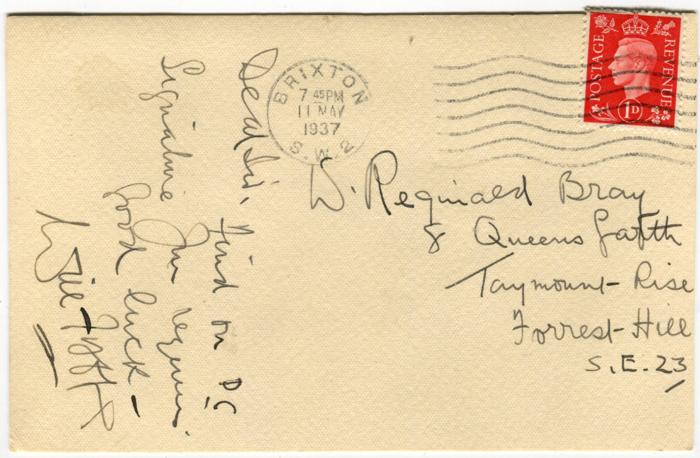 Dear Sir,
find on P.C
Signature you require.
Good luck -
BRIXTON
7 45 PM
11 MAY
1937
S.W.2
POSTAGE
REVENUE
1D
W. Reginald Bray
8 Queens Garth
Taymount-Rise
Forrest-Hill
S.E.23